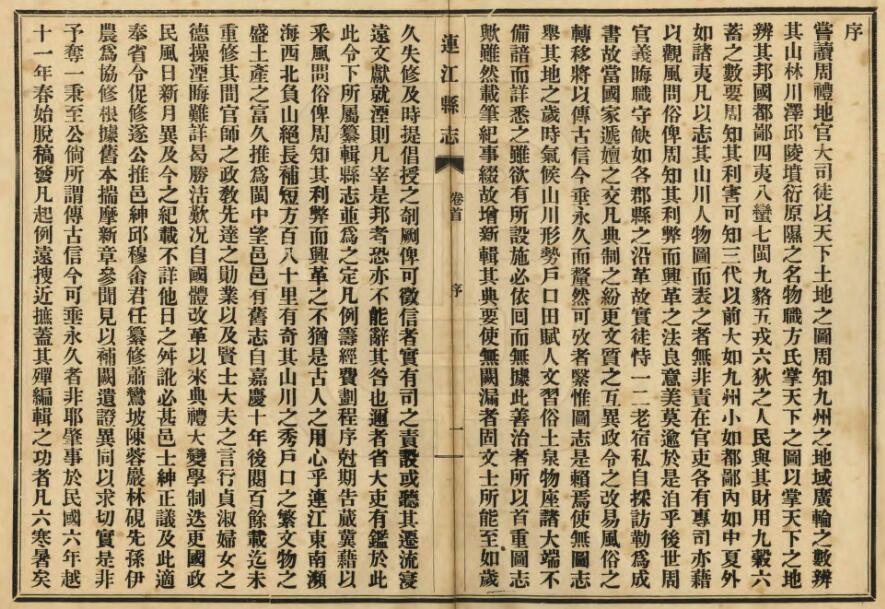 序
嘗讀周禮地官大司徒以天下土地之圖周知九州之地域廣輪之數辨
其山林川澤邱陵墳衍原隰之名物職方氏掌天下之圖以掌天下之地
辨其邦國都鄙四夷八蠻七閩九貉五戎六狄之人民與其財用九穀六
畜之數要周知其利害可知三代以前大如九州小如都鄙內如中夏外
如諸夷凡以志其山川人物圖而表之者無非責在官吏各有專司亦藉
以觀風問俗俾周知其利弊而興革之法良意美莫逾於是洎乎後世周
官義晦職守缺如各郡縣之沿革故實徒恃一二老宿私自採訪勒為成
書故當國家遞嬗之交凡典制之紛更文質之互異政令之改易風俗之
轉移將以傳古信今垂永久而釐然可攷者繄惟圖志是賴焉使無圖志
舉其地之歲時氣候山川形勢戶口田賦人文習俗土泉物產諸大端不
備諳而詳悉之雖欲有所設施必依回而無據此善治者所以首重圖志
歟雖然載筆紀事綴故增新輯其典要使無闕漏者固文士所能至如歲
連江縣志 卷首 序 一
久失修及時提倡授之剞劂俾可徵信者實有司之責設或聽其遷流寖
遠文獻就湮則凡宰是邦者恐亦不能辭其咎也邇者省大吏有鑑於此
此令下所屬纂輯縣志並為之定凡例籌經費劃程序尅期告蕆冀藉以
釆風問俗俾周知其利弊而興革之不猶是古人之用心乎連江東南瀕
海西北負山絕長補短方百八十里有奇其山川之秀戶口之繁文物之
盛土產之富久推為閩中望邑邑有舊志自嘉慶十年後閱百餘載迄未
重修其間官師之政敎先達之勛業以及賢士大夫之言行貞淑婦女之
德操湮晦難詳曷勝浩歎况自國體改革以來典禮大變學制迭更國政
民風日新月異及今之紀載不詳他日之舛訛必甚邑士紳正議及此適
奉省令促修遂公推邑紳邱穆畬君任纂修蕭鸞坡陳蓉嚴林硯先孫伊
農為協修根據舊本揣摩新章參聞見以補闕遺證異同以求切實是非
予奪一秉至公倘所謂傳古信今可垂永久者非耶肇事於民國六年越
十一年春始脫稿發凡起例遠搜近摭蓋其殫編輯之功者凡六寒暑矣